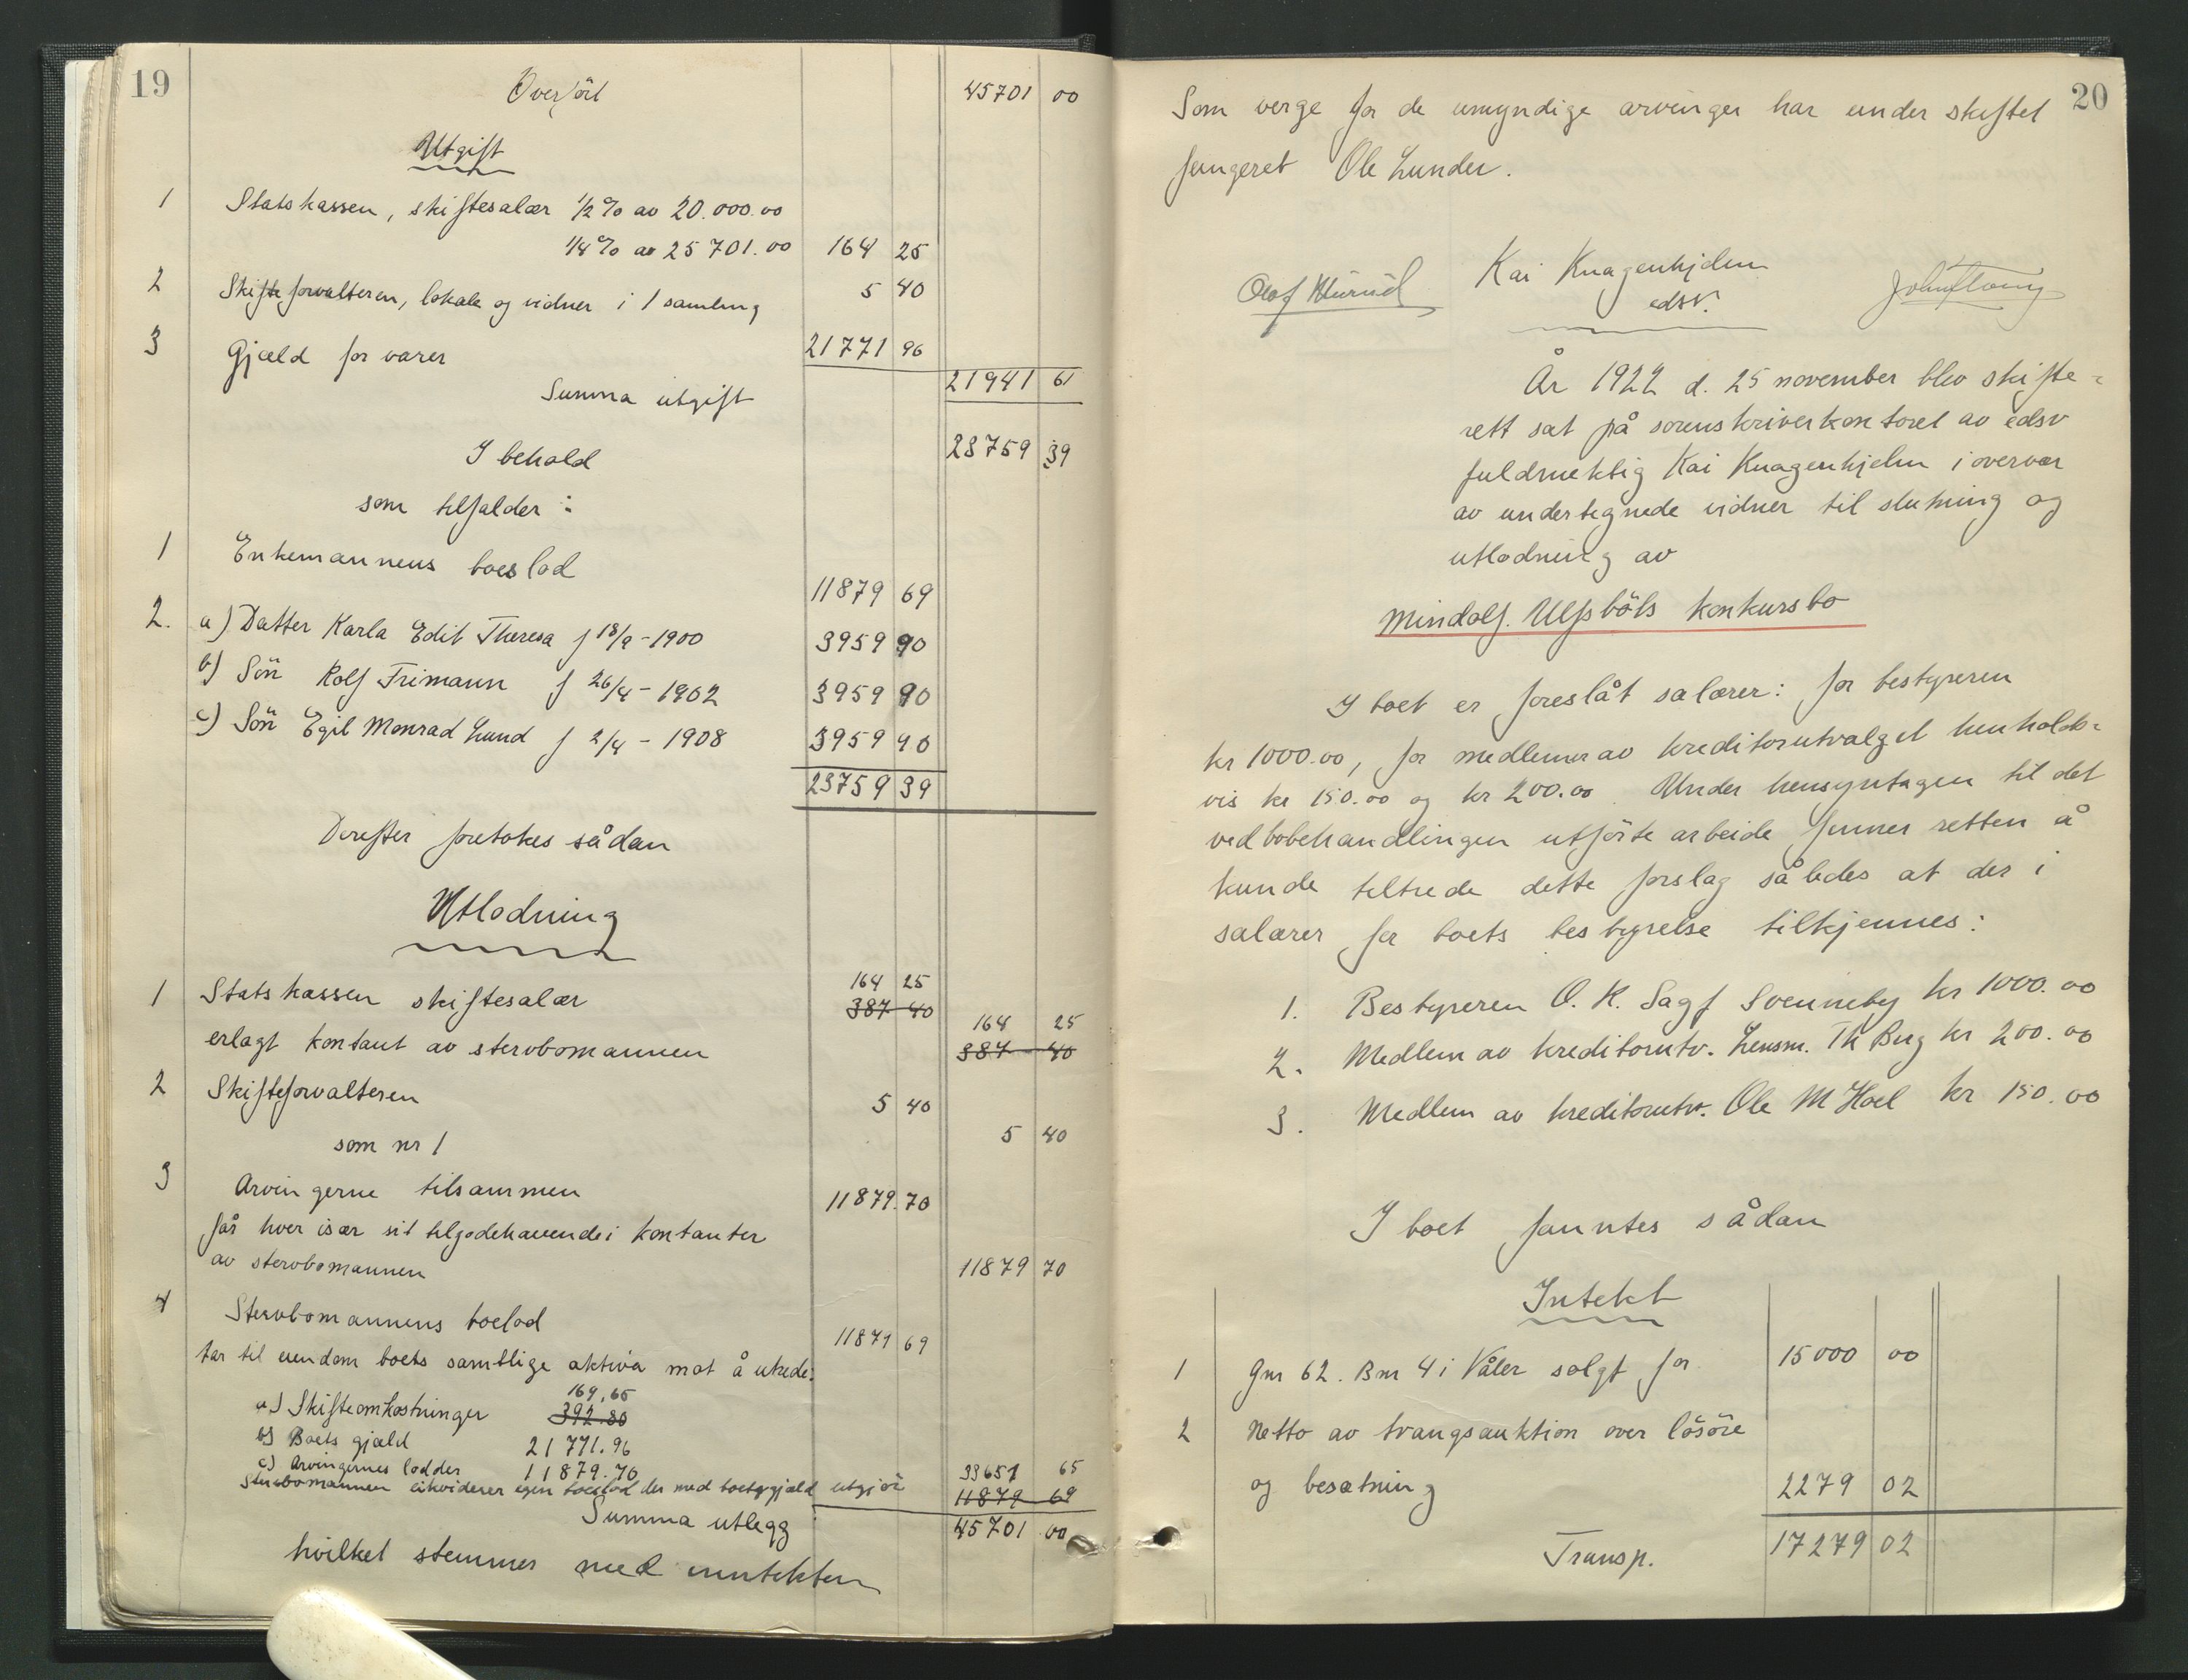 19
Overført 45701 00
Utgift
1 Statskassen, skiftesalær 1/2 % av 20.000.00
1/4 % av 25701.00 164 25
2 Skifteforvalteren, lokale og vidner i 1 samling 5 40
3 Gjæld for varer 21771 96
Summa utgift 21941 61
I behold 23759 39
som tilfalder :
1 Enkemannens boeslod 11879 69
2. a) Datter Karla Edit Theresa f 18/9 - 1900 3959 90
b) Sön Rolf Frimann f 26/4 - 1902 3959 90
c) Sön Egil Monrad Lund f 2/4 - 1908 3959 90
23759 39
Derefter foretokes sådan
Utlodning
1 Statskassen skiftesalær 164 25
387 40
erlagt kontant av stervbomannen 164 25
387 40
2 Skifteforvalteren 5 40
som nr 1 5 40
3 Arvingerne tilsammen 11879.70
får hver især sit tilgodehavende i kontanter
av stervbomannen 11879 70
4 Stervbomannens boslod 11879 69
tar til eiendom boets samtlige aktiva mot å utrede:
169.65
a) Skifteomkostninger 392.80
b) Boets gjæld 21771.96
c) Arvingernes lodder 11879.70
Stervbomannen likviderer egen boeslod der med boets gjæld utgjör 33651 65
11879 69
Summa utlegg 45701 00
hvilket stemmer med inntekten
20
Som verge for de umyndige arvinger har under skiftet
fungeret Ole Lunder.
Kai Knagenhjelm
edsv.
Olaf
År 1922 d. 25 november blev skifte=
rett sat på sorenskriverkontoret av edsv
fuldmektig Kai Knagenhjelm i overvær
av undertegnede vidner til slutning og
utlodning av
Mindolf Ulfsböls konkursbo
I boet er foreslåt salærer: for bestyreren
kr 1000.00, for medlemer av kreditorutvalget henholds=
vis kr 150.00 og kr 200.00. Under hensyntagen til det
ved bobehandlingen utförte arbeide finner retten å
kunde tiltrede dette forslag således at der i
salærer for boets bestyrelse tilkjennes:
1. Bestyreren O. K. Sagf Svenneby kr 1000.00
2. Medlem av kreditorutv. Lensm. Th Berg kr 200.00
3. Medlem av kreditorutv. Ole M Hoel kr 150.00
I boet fanntes sådan
Intekt
1 Gnr 62. Bnr 4 i Våler solgt for 15000 00
2 Netto av tvangsauktion over lösöre
og besætning 2279 02
Transp. 17279 02